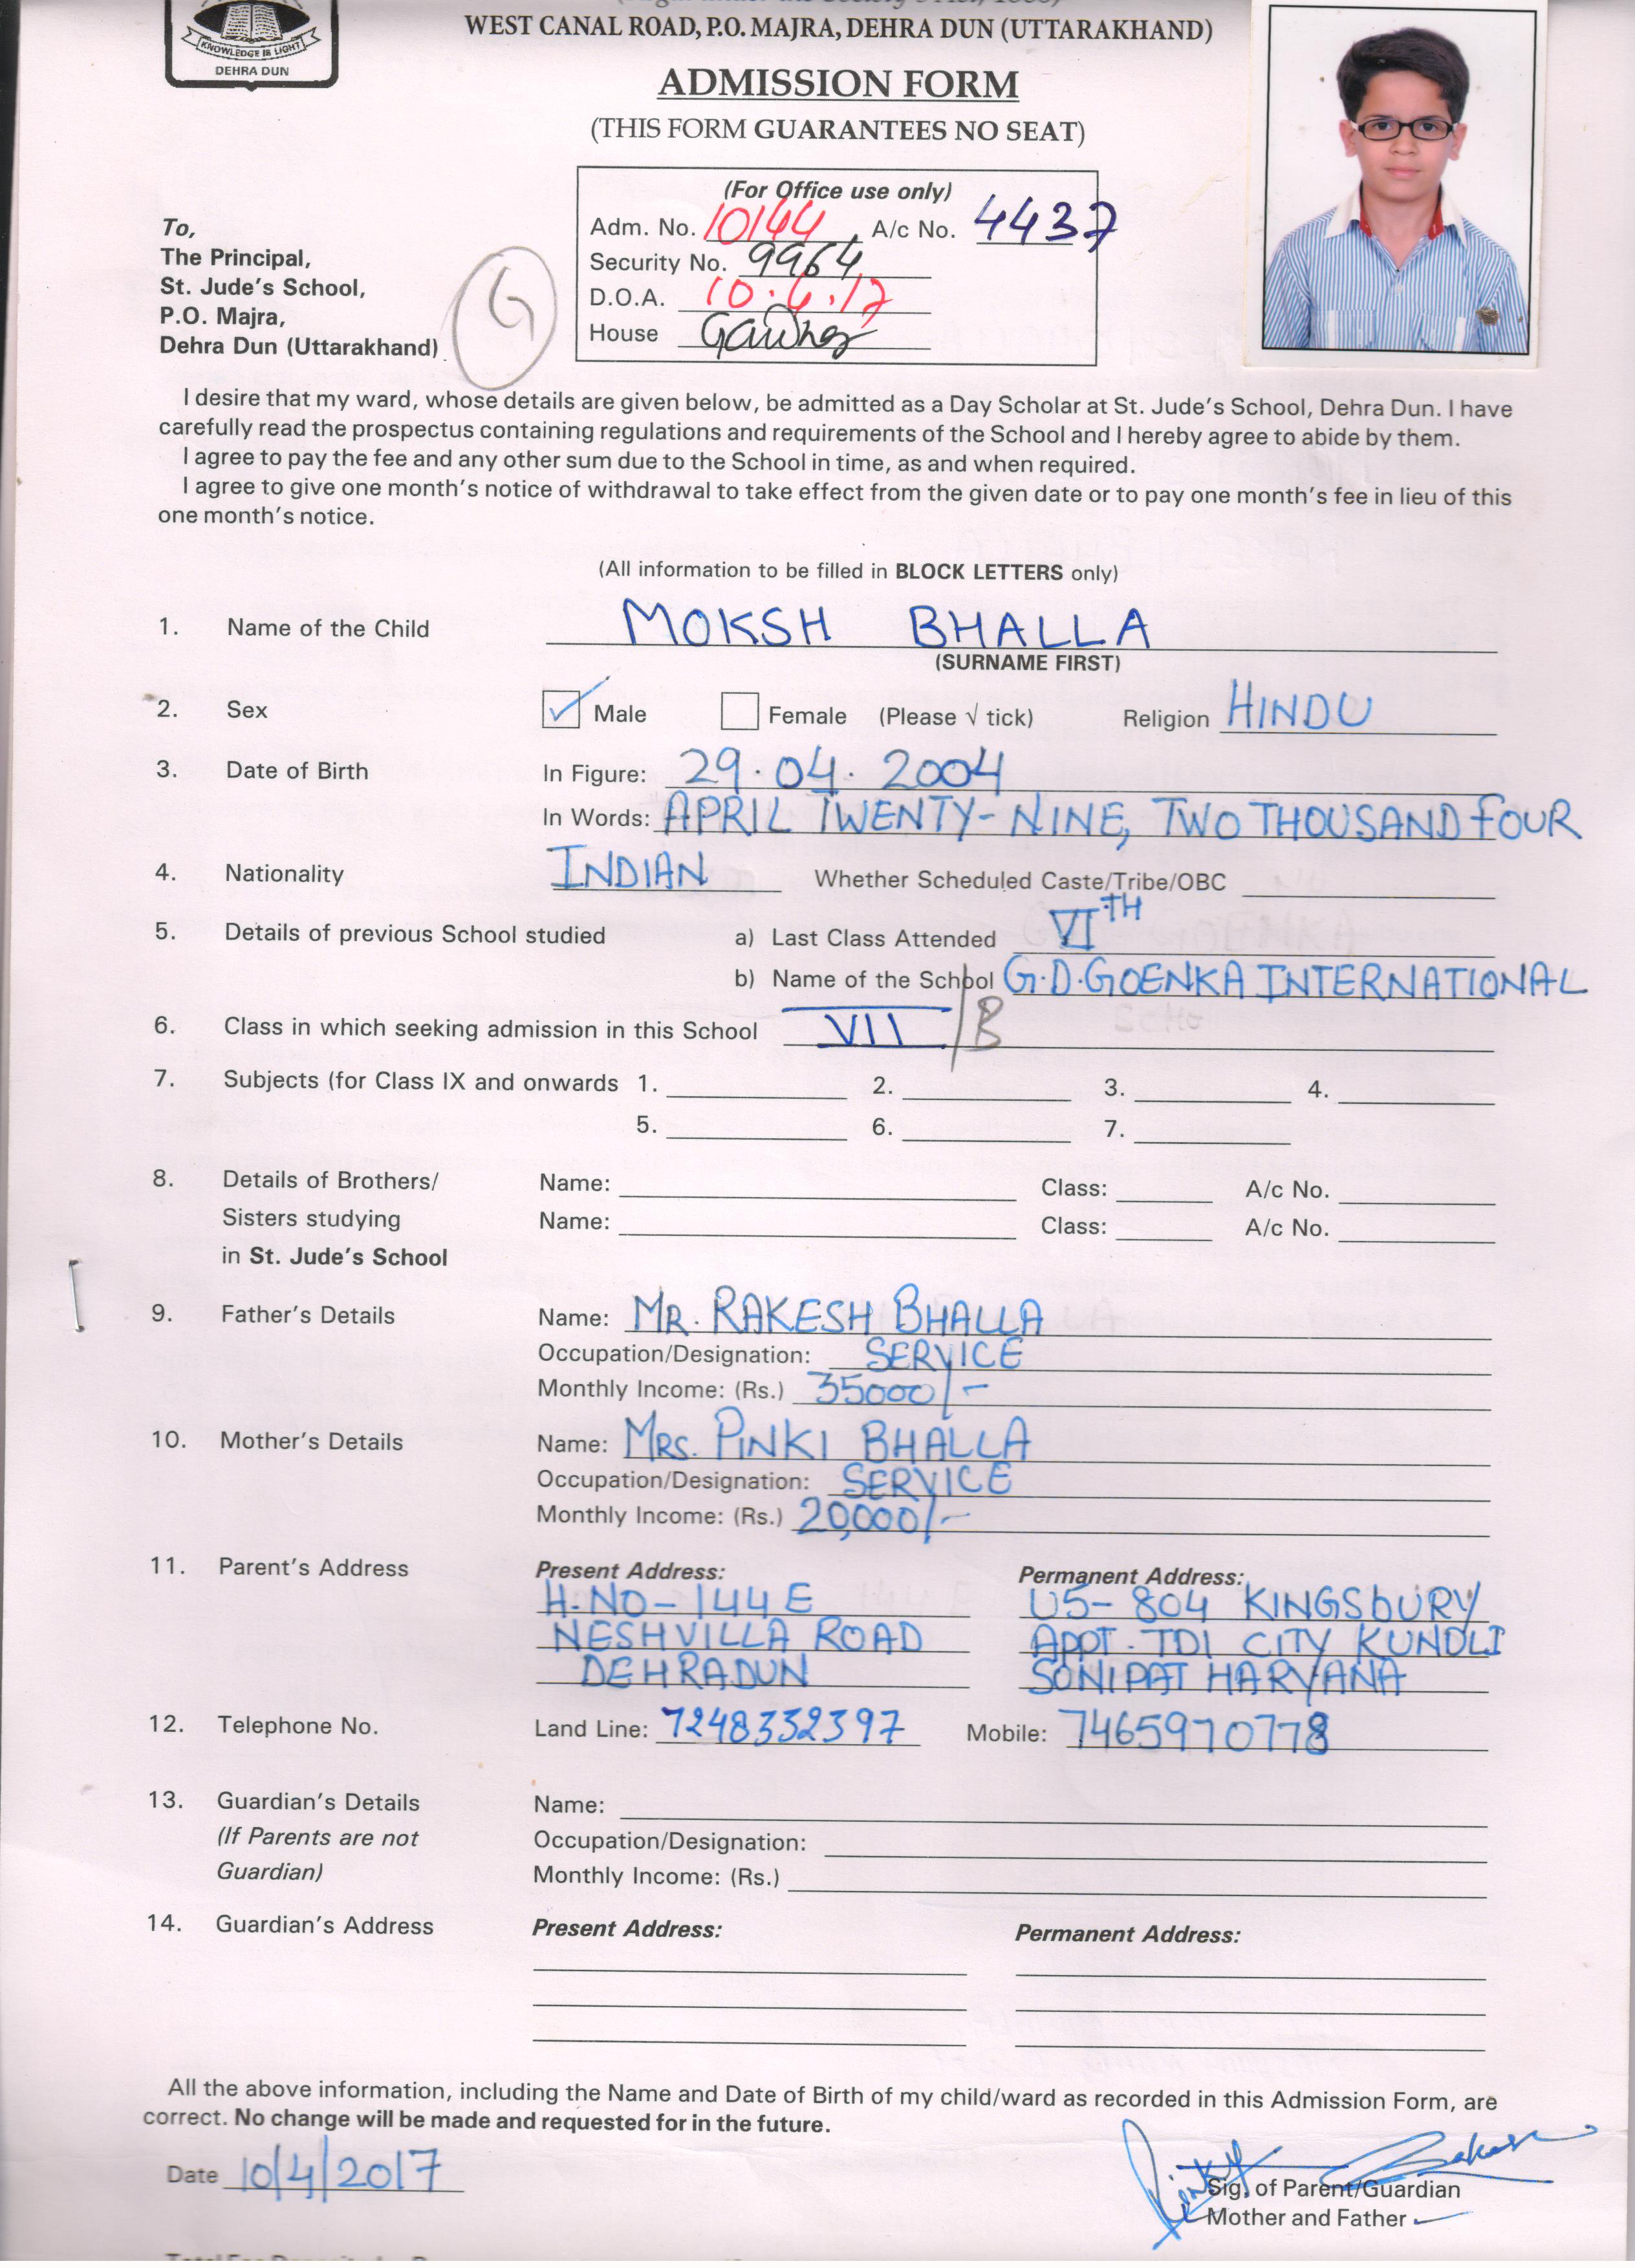 KNOWLEDGE IS LIGHT
DEHRA DUN
WEST CANAL ROAD, P.O. MAJRA, DEHRA DUN (UTTARAKHAND)
ADMISSION FORM
(THIS FORM GUARANTEES NO SEAT)
(For Office use only)
Adm. No. 10144 A/c No. 4437
Security No. 9964
D.O.A. 10.4.17
House
To,
The Principal,
St. Jude's School,
P.O. Majra,
Dehra Dun (Uttarakhand)
G
I desire that my ward, whose details are given below, be admitted as a Day Scholar at St. Jude's School, Dehra Dun. I have
carefully read the prospectus containing regulations and requirements of the School and I hereby agree to abide by them.
I agree to pay the fee and any other sum due to the School in time, as and when required.
I agree to give one month's notice of withdrawal to take effect from the given date or to pay one month's fee in lieu of this
one month's notice.
(All information to be filled in BLOCK LETTERS only)
1. Name of the Child MOKSH BHALLA
(SURNAME FIRST)
2. Sex ✓ Male Female (Please √ tick) Religion HINDU
3. Date of Birth In Figure: 29.04.2004
In Words: APRIL TWENTY-NINE, TWO THOUSAND FOUR
4. Nationality INDIAN Whether Scheduled Caste/Tribe/OBC
5. Details of previous School studied a) Last Class Attended VI TH
b) Name of the School G.D.GOENKA INTERNATIONAL
6. Class in which seeking admission in this School VII /B
7. Subjects (for Class IX and onwards 1. 2. 3. 4.
5. 6. 7.
8. Details of Brothers/ Name: Class: A/c No.
Sisters studying Name: Class: A/c No.
in St. Jude's School
9. Father's Details Name: MR. RAKESH BHALLA
Occupation/Designation: SERVICE
Monthly Income: (Rs.) 35000/-
10. Mother's Details Name: MRS. PINKI BHALLA
Occupation/Designation: SERVICE
Monthly Income: (Rs.) 20,000/-
11. Parent's Address Present Address: Permanent Address:
H.NO-144E U5-804 KINGSbURY
NESHVILLA ROAD APPT. TDI CITY KUNDLI
DEHRADUN SONIPAT HARYANA
12. Telephone No. Land Line: 7248332397 Mobile: 7465970778
13. Guardian's Details Name:
(If Parents are not Occupation/Designation:
Guardian) Monthly Income: (Rs.)
14. Guardian's Address Present Address: Permanent Address:
All the above information, including the Name and Date of Birth of my child/ward as recorded in this Admission Form, are
correct. No change will be made and requested for in the future.
Date 10/4/2017
Sig. of Parent/Guardian
Mother and Father